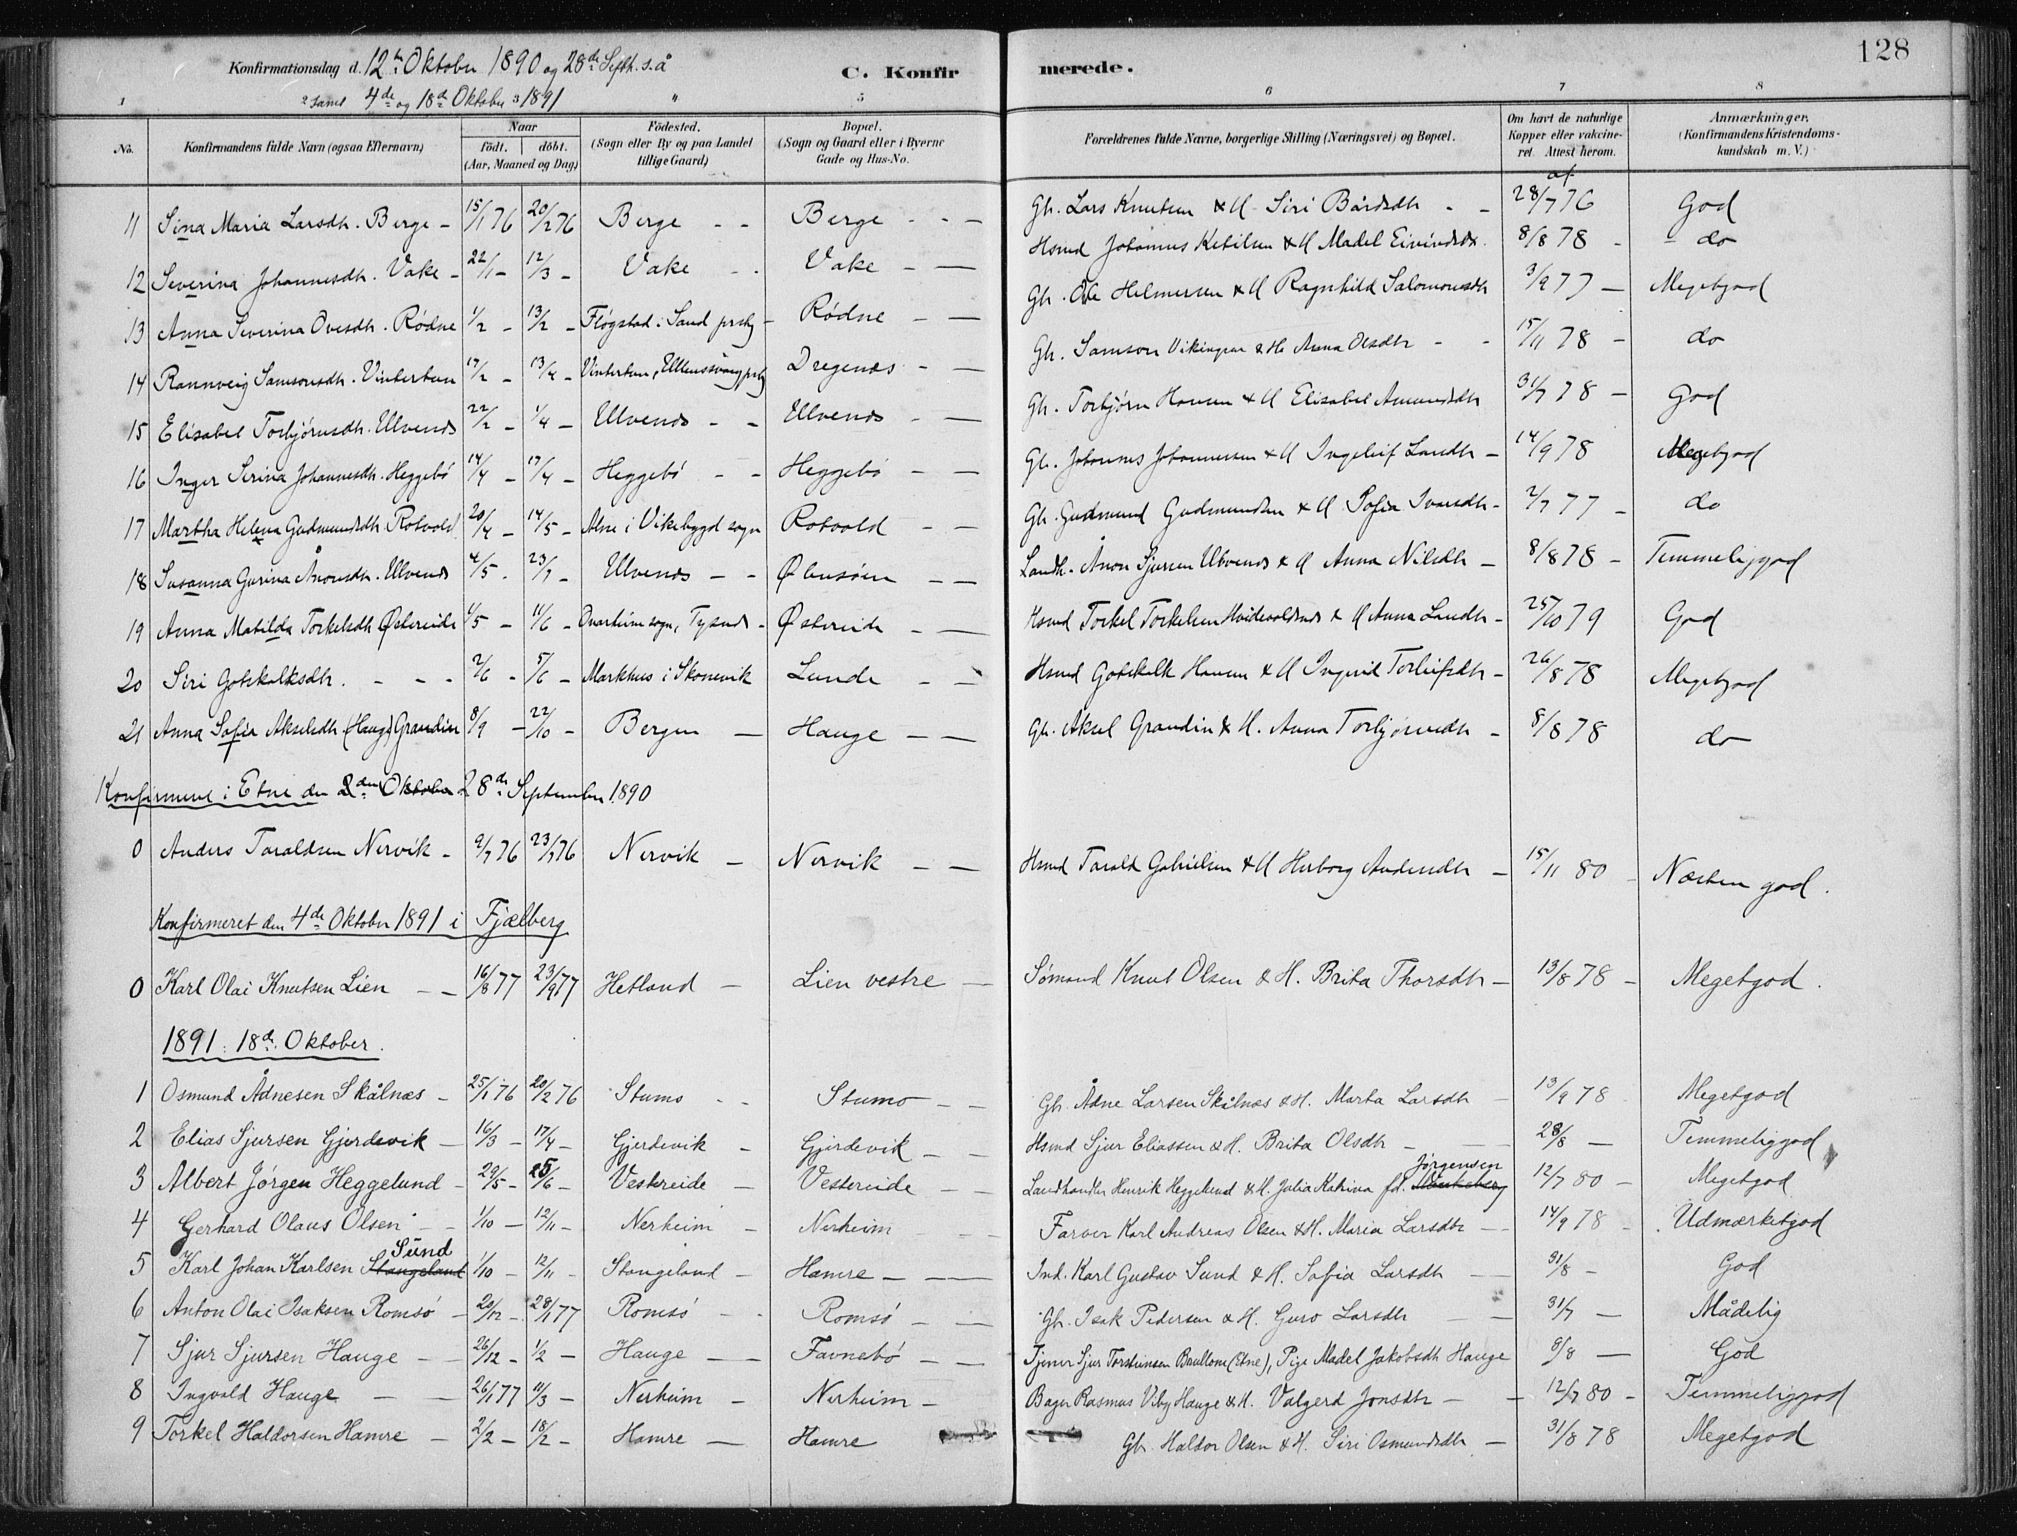 128
Konfirmationsdag d. 12te Oktober 1890 og 28de Septh. s.å
C. Konfirmerede.
samt 4de og 18de Oktober 1891
1 2 3 4 5 6 7 8
No. Konfirmandens fulde Navn (ogsaa Efternavn) Naar födt. döbt. (Aar, Maaned og Dag) Födested. (Sogn eller By og paa Landet tillige Gaard) Bopæl. (Sogn og Gaard eller i Byerne Gade og Hus-No. Forældrenes fulde Navne, borgerlige Stilling (Næringsvei) og Bopæl. Om havt de naturlige Kopper eller vakcineret. Attest herom. Anmærkninger. (Konfirmandens Kristendomskundskab m. V.)
11 Sina Maria Larsdtr. Berge - 15/1 76 20/2 76 Berge - - Berge - - - Gbr. Lars Knutsen & H Siri Bårdsdtr - - 28/7 76 God
12 Severina Johannesdtr. Vake - 22/1 - 12/3 - Vake - - Vake - - Hsmd Johannes Ketilsen & H Madel Eivindsdtr. 8/8 78 - do
13 Anna Severina Ovesdtr. Rødne 1/2 - 13/2 - Fløgstad i Sand prstgj - Rødne - - Gbr. Ove Helmersen & H Ragnhild Salomonsdtr 3/9 77 - Megetgod
14 Rannveig Samsonsdtr. Vintertun 17/2 - 13/4 - Vintertun, Ullensvang prstgj Dregenes - - Gbr. Samson Vikingsen & H. Anna Olsdtr - - 15/11 78 - do
15 Elisabet Torbjørnsdtr. Ulvenes 22/2 - 1/4 - Ulvenes - - Ulvenes - - Gbr. Torbjørn Hansen & H Elisabet Amundsdtr 31/7 78 - God
16 Inger Serina Johannesdtr. Heggebø 14/4 - 17/4 - Heggebø - - Heggebø - - Gbr. Johannes Johannessen & H Ingeleif Larsdtr - 14/9 78 Megetgod
17 Martha Helena Gudmundsdtr Rotvold 20/4 - 14/5 - Alne i Vikebygd sogn Rotvold - - Gbr. Gudmund Gudmundsen & H Sofia Ivarsdtr - 2/7 77 - do
18 Susanna Gurina Ånonsdtr. Ulvenes 4/5 - 23/7 - Ulvenes - - Ølensøen - - Landh. Ånon Sjursen Ulvenes & H Anna Nilsdtr - 8/8 78 - Temmeliggod
19 Anna Matilda Torkelsdtr Østereide 4/5 - 11/6 - Onarheim sogn, Tysnes - Østereide - - Hsmd Torkel Torkelsen Hvidevoldsnes & H Anna Larsdtr - 25/10 79 God
20 Siri Gotskalksdtr. - - - 2/6 - 5/6 - Markhus i Skonevik Lunde - - Hsmd Gotskalk Hansen & H Ingerid Torleifsdtr - 26/8 78 Megetgod
21 Anna Sofia Akselsdtr (Hauge) Grandin 8/9 - 22/10 - Bergen - Hauge - - Gbr. Aksel Grandin & H. Anna Torbjørnsdtr - 8/8 78 do
Konfirmeret i Etne den 2den Oktober 28de September 1890
0 Anders Taraldsen Nervik - 9/7 76 23/7 76 Nervik - Nervik - - Hsmd Tarald Gabrielsen & H Herborg Andersdtr - 15/11 80 - Næsten god.
Konfirmeret den 4de Oktober 1891 i Fjælberg
0 Karl Olai Knutsen Lien - - 16/8 77 23/9 77 Hetland - Lien vestre - Sømand Knut Olsen & H. Brita Thorsdtr - 13/8 78 - Megetgod.
1891. 18de Oktober.
1 Osmund Ådnesen Skålnæs - 25/1 76 20/2 76 Stumo - - Stumo - - Gbr. Ådne Larsen Skålnæs & H. Marta Larsdtr - 13/9 78 Megetgod
2 Elias Sjursen Gjerdevik - 16/3 - 17/4 - Gjerdevik - Gjerdevik - - Hsmd Sjur Eliassen & H. Brita Olsdtr - - 28/8 - Temmeliggod
3 Albert Jørgen Heggelund - 29/5 - 25/6 - Vestereide - Vestereide - - Landhandler Henrik Heggelund & H. Julia Katrina fd. Jørgensen 12/7 80 - Megetgod
4 Gerhard Olaus Olsen - - 1/10 - 12/11 - Nerheim - Nerheim - - Farver Karl Andreas Olsen & H. Maria Larsdtr - 14/9 78 - Udmærketgod
5 Karl Johan Karlsen Stangeland Sund 1/10 - 12/11 - Stangeland - Hamre - - Ind. Karl Gustav Sund & H. Sofia Larsdtr - 31/8 - God
6 Anton Olai Isaksen Romsø - 20/12 - 28/1 77 Romsø - - Romsø - - Gbr. Isak Pedersen & H. Guro Larsdtr - - 31/7 - Mådelig
7 Sjur Sjursen Hauge - - 26/12 - 1/2 - Hauge - - Favnebø - - Tjener Sjur Torsteinsen (Etne), Pige Madel Jakobsdtr Hauge 9/8 - God
8 Ingvald Hauge - - 26/1 77 11/3 - Nerheim - Nerheim - Bager Rasmus Viby Hauge & H. Valgerd Jonsdtr - - 12/7 80 - Temmeliggod
9 Torkel Haldorsen Hamre - 2/2 - 18/2 - Hamre - Hamre Gbr. Haldor Olsen & H. Siri Osmundsdtr - 31/8 78 Megetgod